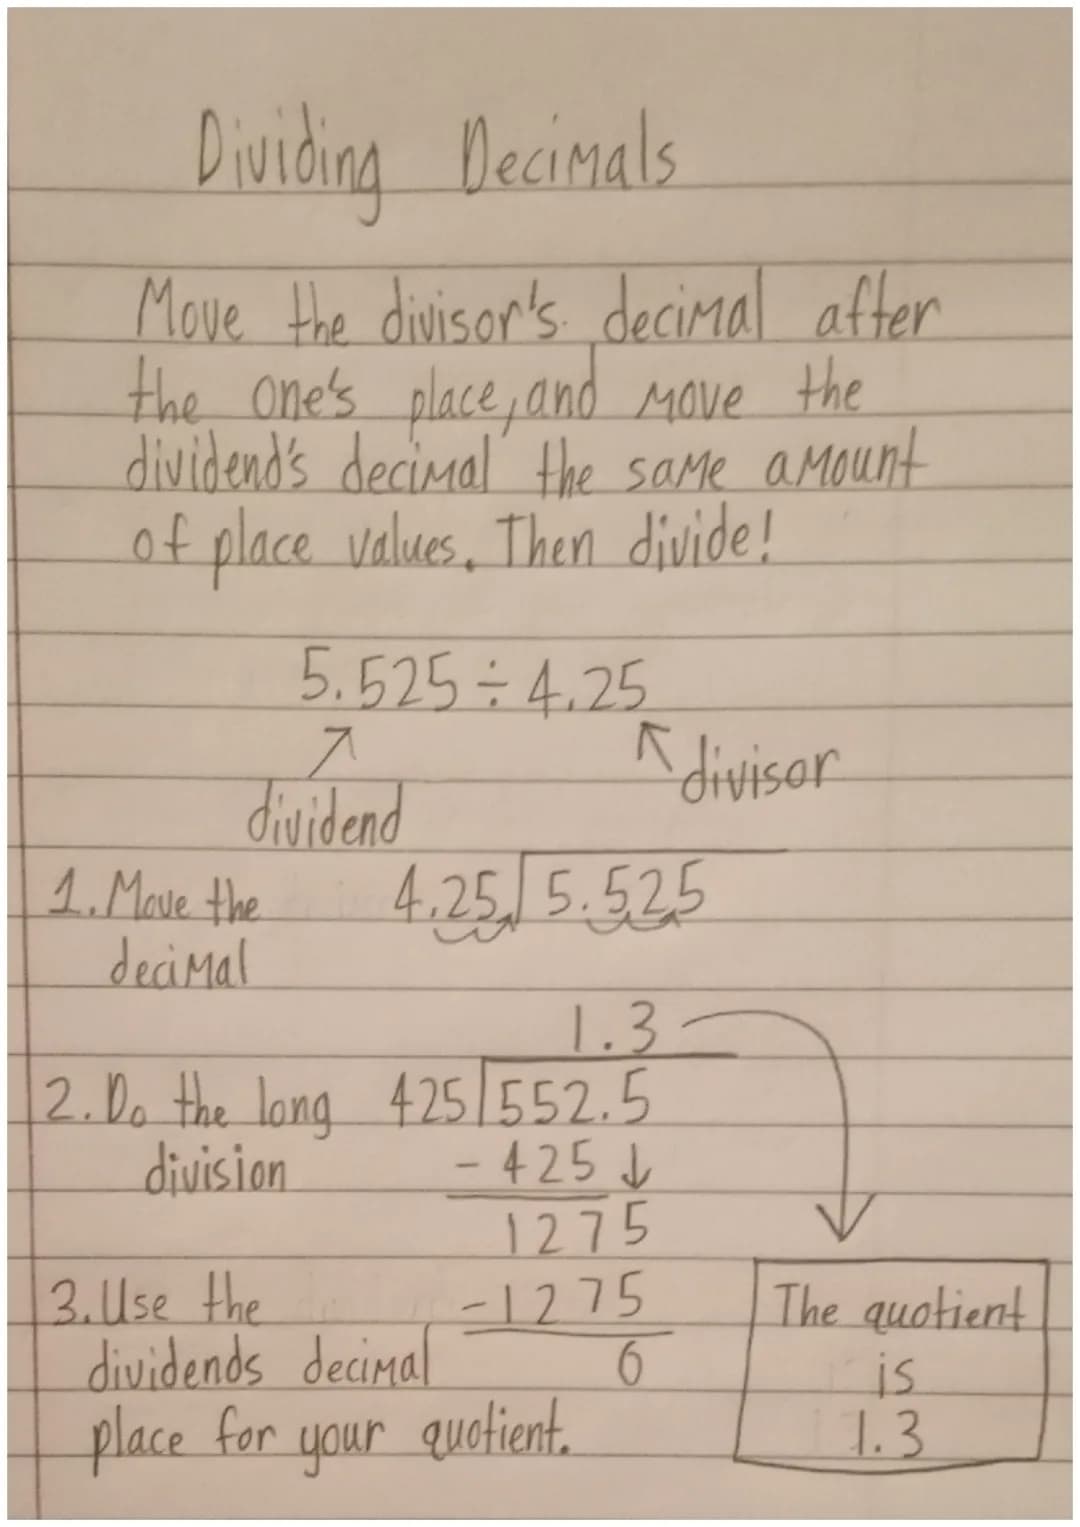 Dividing Decimals
Move the divisor's decimal after
the one's place, and move the
dividend's decimal the same amount
of place values. Then divide!
5.525 ÷ 4.25
dividend
divisor
1. Move the
decimal
4.25 5.525
1.3
2. Do the long
division
425 552.5
- 425
1275
- 1275
0
3. Use the
dividends decimal
place for your quotient.
The quotient
is
1.3